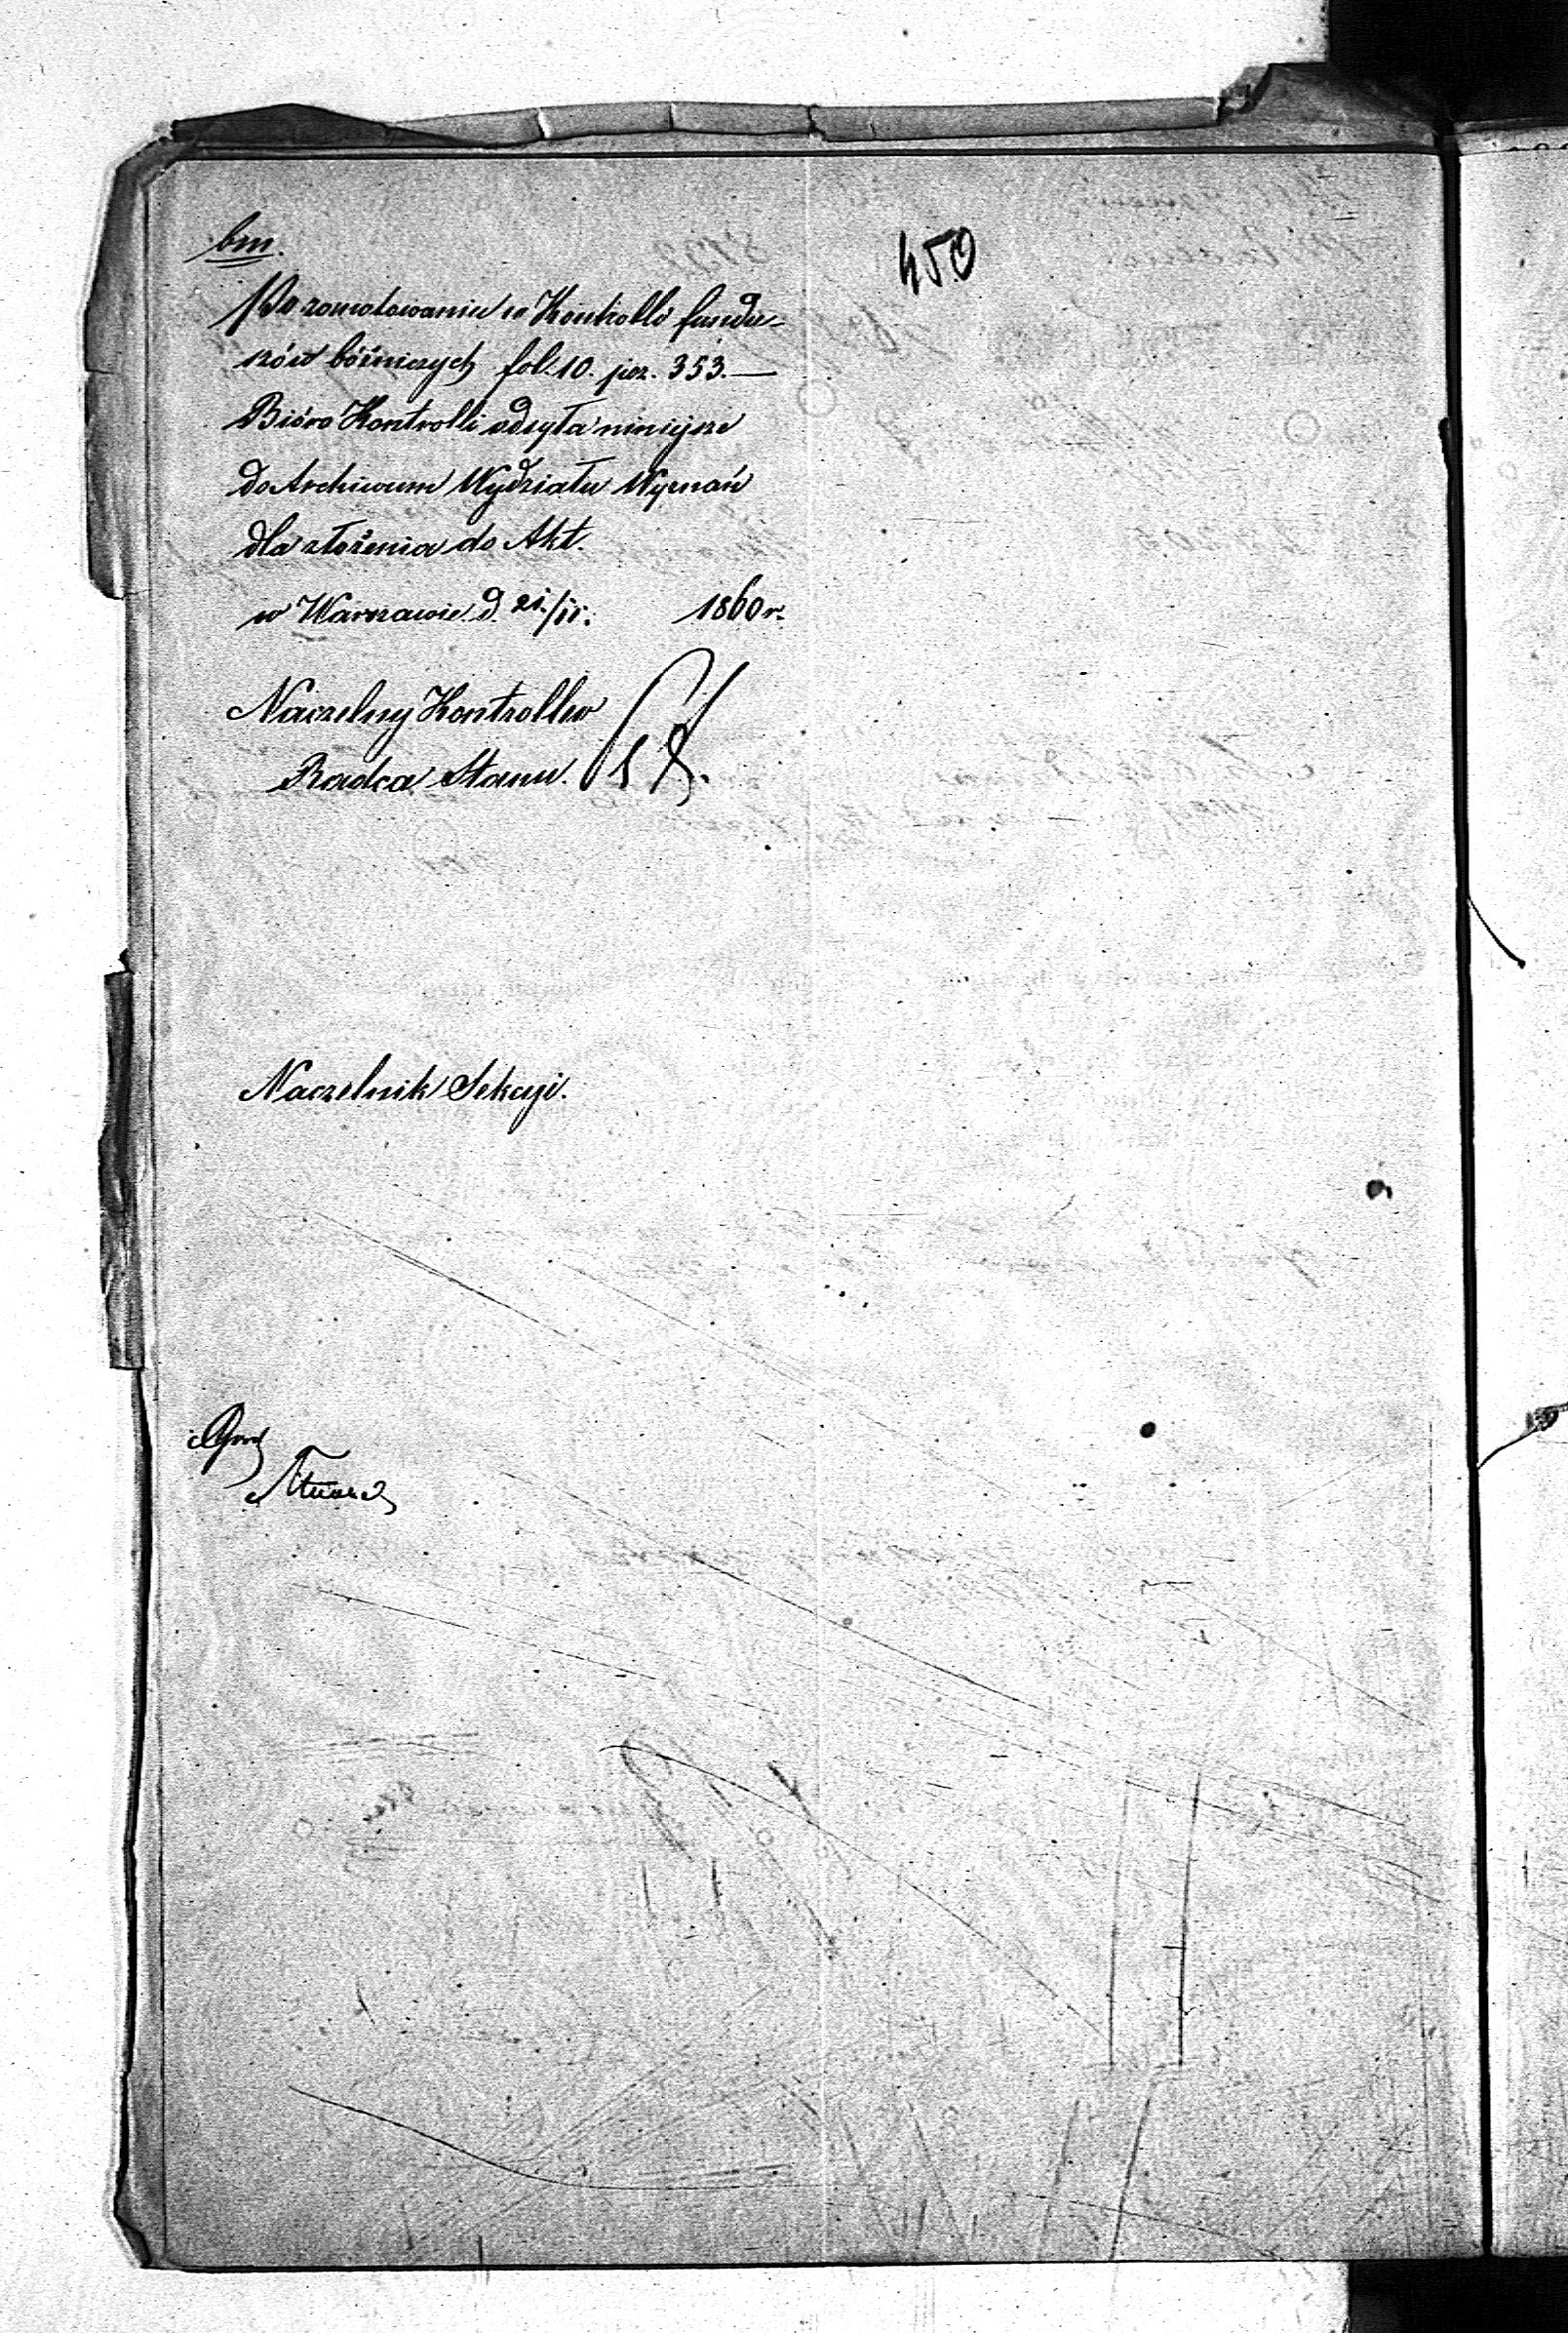 bm.
450
Po zanotowaniu w Kontrolli fundu-
szów bóżniczych fol. 10. poz. 353. —
Bióro Kontrolli odsyła niniejsze
do Archiwum Wydziału Wyznań
dla złożenia do Akt.
w Warszawie d. 21/11. 1860 r.
Naczelny Kontroller
Radca Stanu.
Naczelnik Sekcyi.